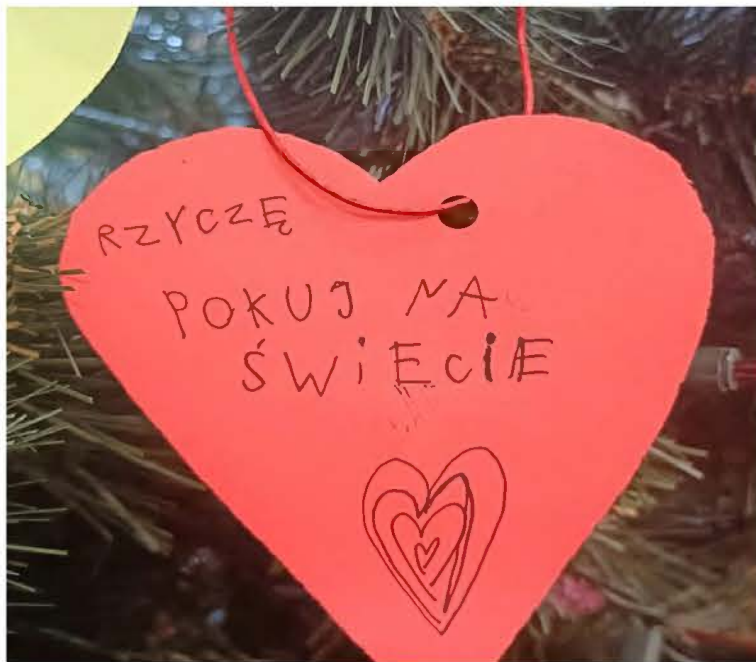 RZYCZĘ
POKUJ NA
ŚWiECiE